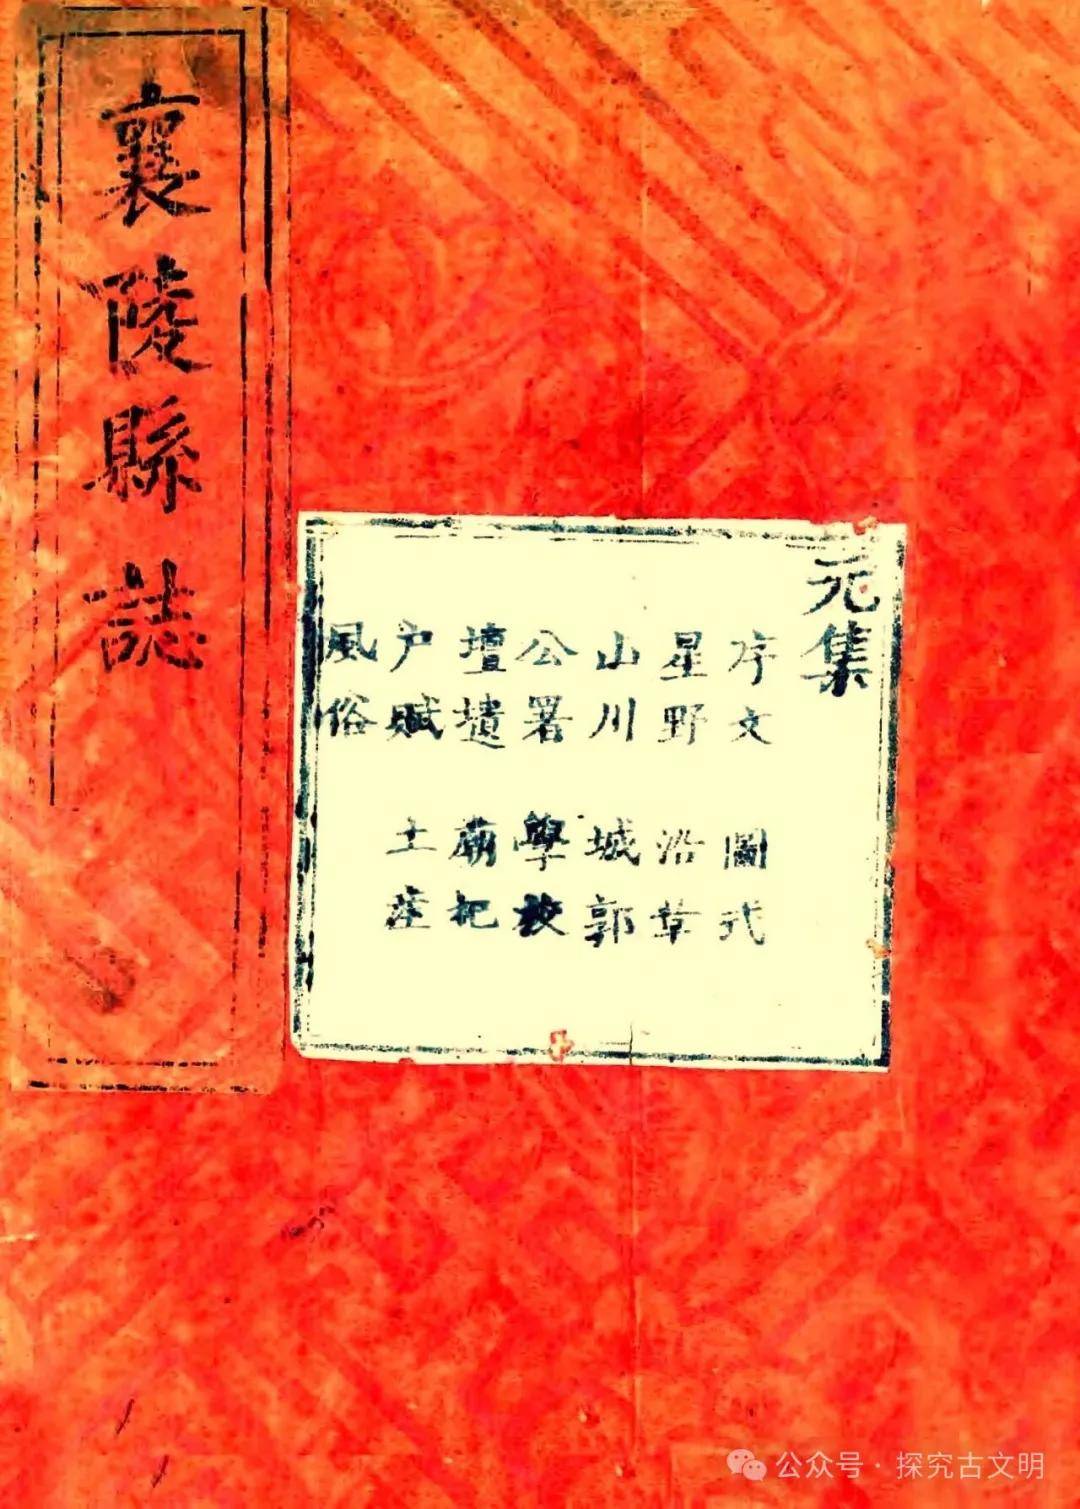 襄陵縣誌
元集
序文 圖式
星野 沿革
山川 城郭
公署 學校
壇壝 廟祀
户賦 土產
風俗
公众号 · 探究古文明